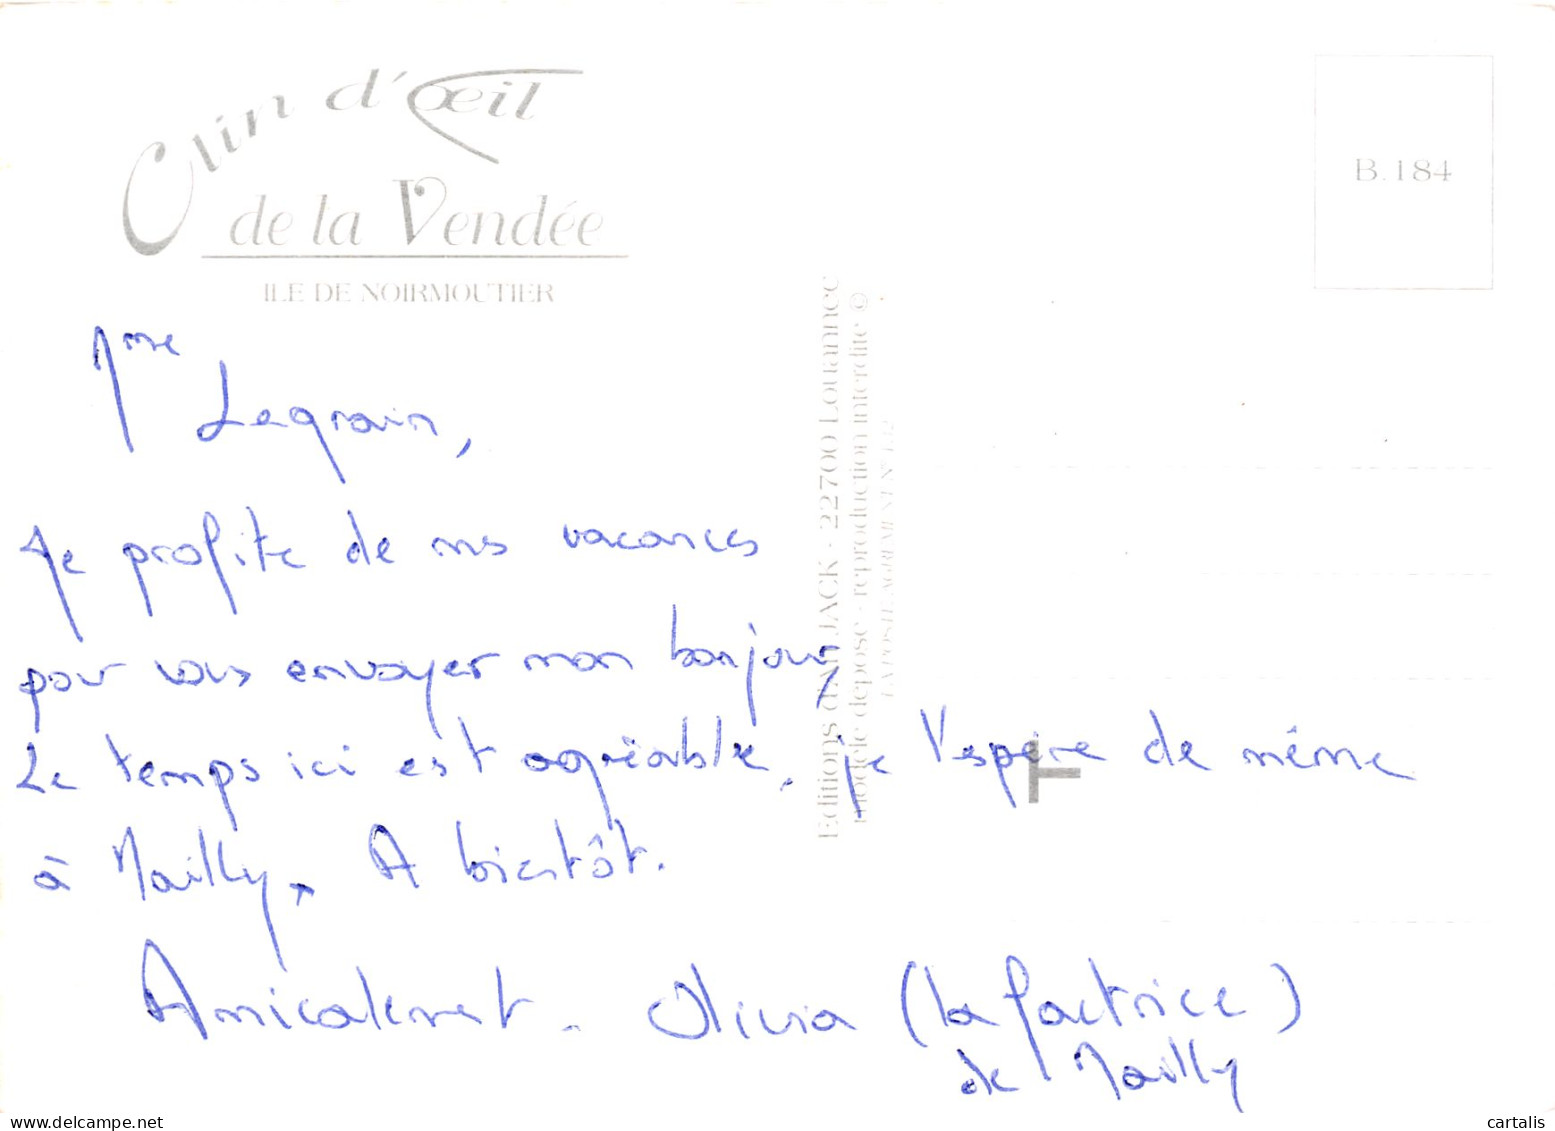 Clin d'œil
de la Vendée
ILE DE NOIRMOUTIER
B.184
Editions d'Art JACK - 22700 Louannec
modèle déposé - reproduction interdite ©
LA POSTE AGREMENT N°
Mme
Legrain,
Je profite de mes vacances
pour vous envoyer mon bonjour,
Le temps ici est agréable, je l'espère de même
à Mailly. A bientôt.
Amicalement. Olivia (la factrice)
de Mailly
delcampe.net
cartalis